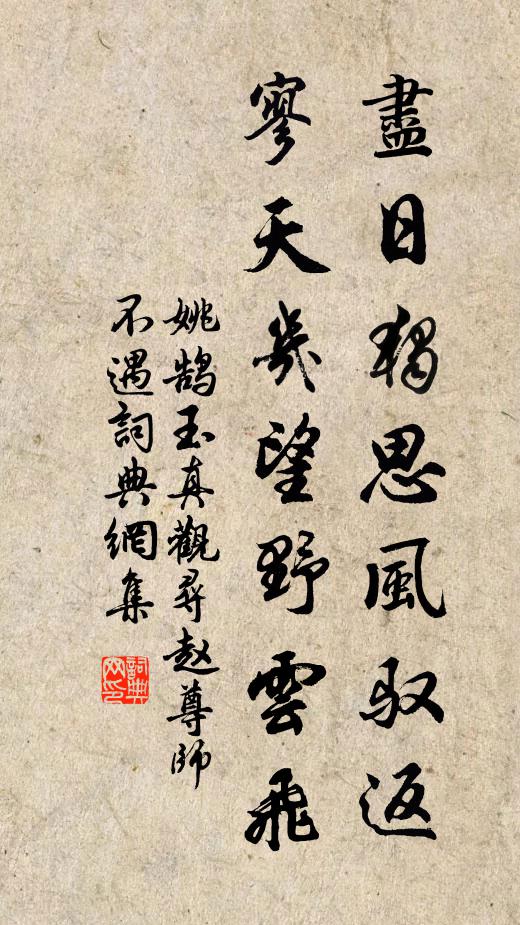 盡日獨思風馭返
寥天幾望野雲飛
姚鵠玉真觀尋趙尊師
不遇詞典網集
詞典网印